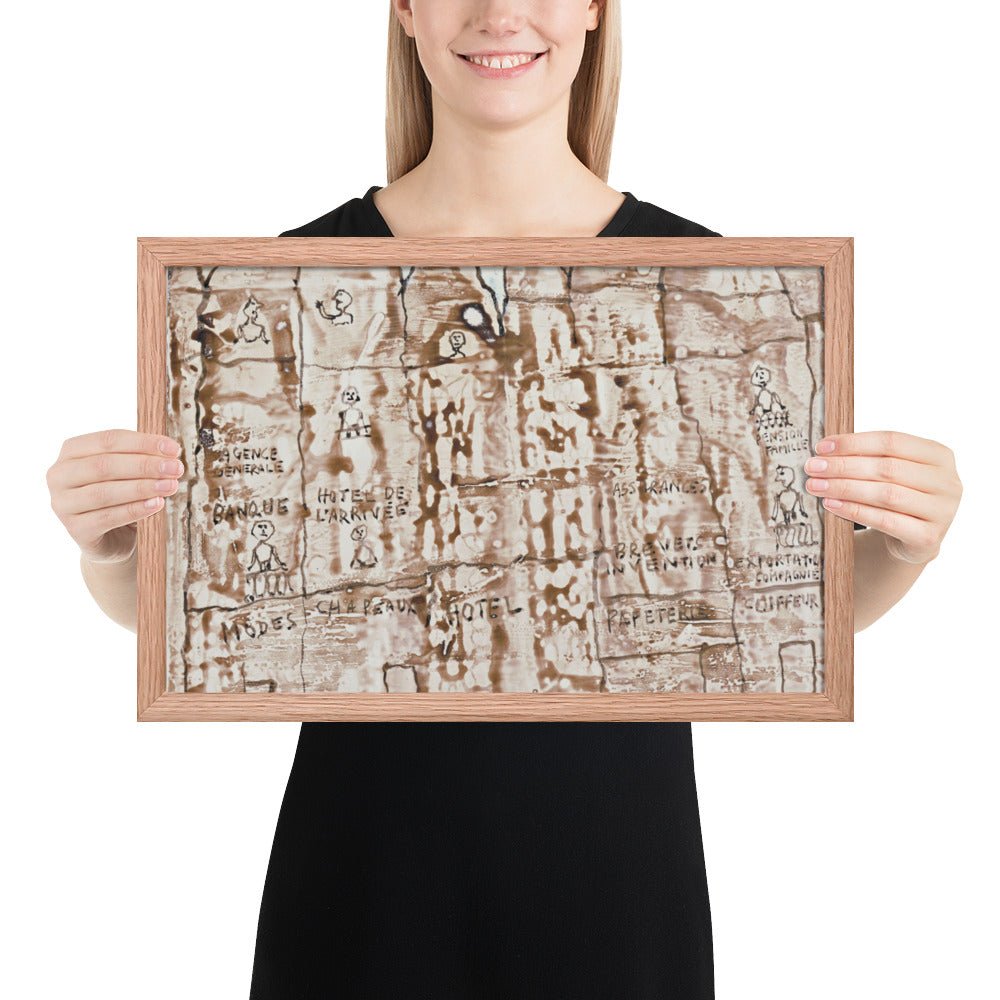 AGENCE
GENERALE
BANQUE
HOTEL DE
L'ARRIVÉE
ASSURANCES
PENSION
FAMILLE
BREVETS
INVENTION
EXPORTATION
COMPAGNIE
MODES
CHAPEAUX
HOTEL
PAPETERIE
COIFFEUR